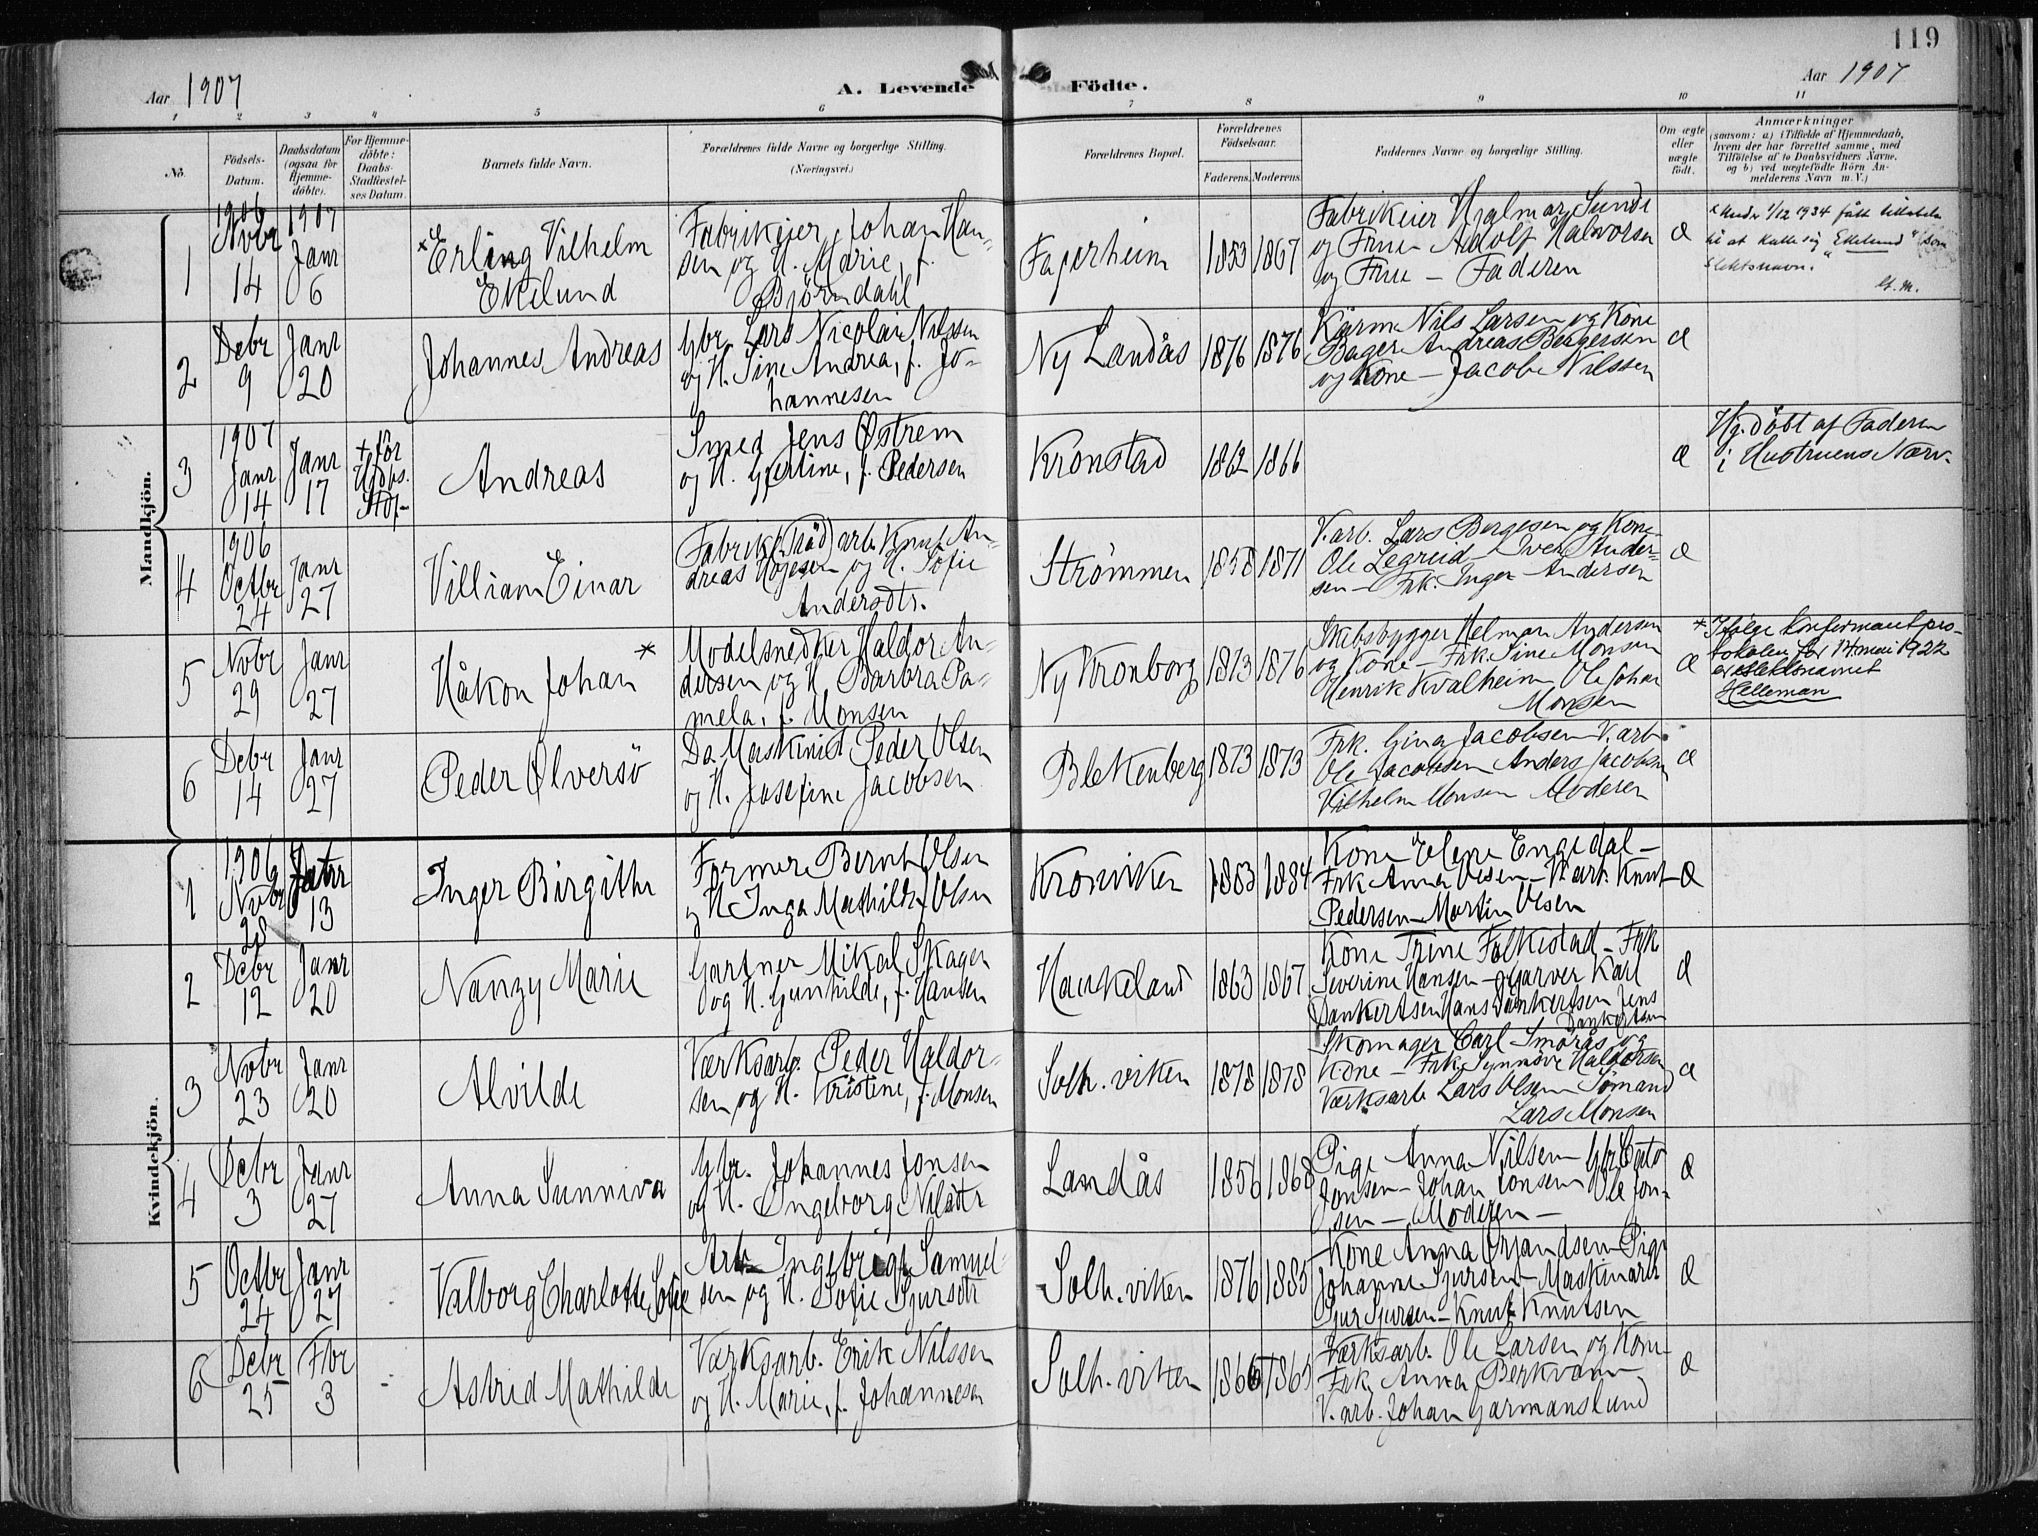 119
Aar 1907
A. Levende
Födte.
Aar 1907
1 2 3 4 5 6 7 8 9 10 11
No.
Födsels-
Datum.
Daabsdatum
(ogsaa for
Hjemme-
döbte).
For Hjemme-
döbte:
Daabs-
Stadfæstel-
ses Datum.
Barnets fulde Navn.
Forældrenes fulde Navne og borgerlige Stilling.
(Næringsvei.)
Forældrenes Bopæl.
Forældrenes
Födselsaar.
Faderens. Moderens.
Faddernes Navne og borgerlige Stilling.
Om ægte
eller
uægte
födt.
Anmærkninger
(saasom: a) i Tilfælde af Hjemmedaab,
hvem der har forrettet samme, med
Tilföielse af to Daabsvidners Navne,
og b) ved uægtefödte Börn An-
melderens Navn m. V.)
Mandkjön.
1
1906
Novbr
14
1907
Janr
6
* Erling Vilhelm
Ekelund
Fabrikeier Johan Han-
sen og H. Marie, f.
Björndahl
Fagerheim
1853 1867
Fabrikeier Hjalmar Sunde
og Frue Adolf Halvorsen
og Frue - Faderen
Æ
* Under 1/12 1934 fått tillatelse
til at kalle sig "Ekelund" (som
slektsnavn.
2
Debr
9
Janr
20
Johannes Andreas
Gbr. Lars Nicolai Nilssen
og H. Sine Andrea, f. Jo-
hannesen
Ny Landås
1876 1876
Nils Larsen og Kone
Bager Andreas Bergersen
og Kone - Jacob Nilssen
Æ
3
1907
Janr
14
Janr
17
+ för
Hjdbs.
Stdf-
Andreas
Smed Jens Østrem
og H. Gjertine, f. Pedersen
Kronstad
1862 1866
Æ
Hj. döbt af Faderen
i Hustruens Nærv.
4
1906
Octbr
24
Janr
27
Villiam Einar
Fabrik (Tråd) arb. Knut An-
dreas og H. Sofie
Andersdtr.
Strømmen
1858 1871
V.arb. Lars Bergesen og Kone
Ole Legreid - Iver Ander-
sen - Frk. Inger Andersen
Æ
5
Novbr
29
Janr
27
Håkon Johan *
Modelsnedker Haldor An-
dersen og H. Barbra Pa-
mela, f. Monsen
Ny Kronborg
1873 1876
Skibsbygger Helman Andersen
og Kone - Frk. Sine Monsen
Henrik Kvalheim Ole Johan
Monsen
Æ
* Ifølge Konfirmantpro-
tokolen for 14 mai 1922
er slektsnavnet
Helleman
6
Debr
14
Janr
27
Peder Ølversö
Da. Maskinist Peder Olsen
og H. Josefine Jacobsen
Blekenberg
1873 1873
Frk. Gina Jacobsen V.arb.
Ole Jacobsen Anders Jacobsen
Vilhelm Monsen Moderen
Æ
Kvindekjön.
1
1906
Novbr
28
Janr
13
Inger Birgithe
Former Bernt Olsen
og H Inga Mathilde Olsen
Kronviken
1863 1884
Kone Elene Engedal -
Frk Anna Olsen - V.arb. Knut
Pedersen - Martin Olsen
Æ
2
Debr
12
Janr
20
Nanzy Marie
Gartner Mikal Skagen
og H. Gunhilde, f. Hansen
Haukeland
1863 1867
Kone Trine Folkestad - Frk
Severine Hansen - Garver Karl
Dankertsen Hans Dankertsen Jens
Dankertsen
Æ
3
Novbr
23
Janr
20
Alvilde
Værksarb. Peder Haldor-
sen og H. Kristine, f. Monsen
Solh. viken
1878 1878
Skomager Carl Smörås og
Kone - Frk Synnöve Haldorsen
Værksarb Lars Olsen Sømand
Lars Monsen
Æ
4
Debr
3
Janr
27
Anna Sunniva
Gbr. Johannes Jonsen
og H. Ingeborg Nilsdtr
Landås
1856 1868
Pige Anna Nilsen Gbr
Jonsen - Johan Jonsen Ole Jon-
sen - Moderen -
Æ
5
Octbr
24
Janr
27
Valborg Charlotte Sofie
Arb. Ingebrigt Samuel-
sen og H. Sofie Sjursdtr
Solh. viken
1876 1885
Kone Anna Ørjandsen Pige
Johanne Sjursen - Maskinarb
Sjur Sjursen - Knut Knutsen
Æ
6
Debr
25
Fbr
3
Astrid Mathilde
Værksarb. Erik Nilssen
og H. Marie, f. Johannesen
Solh. viken
1866 1865
Værksarb. Ole Larsen og Kone
Frk Anna Berkvam
V. arb. Johan Garmanslund
Æ